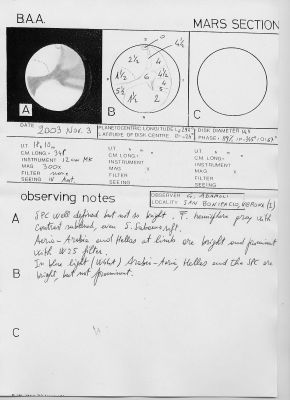 B.A.A.
MARS SECTION
0
4½
2½ 4
1½ 6 4
5½ 4½
4½ 2
A
B
C
DATE 2003 Nov. 3
PLANETOCENTRIC LONGITUDE
LATITUDE OF DISK CENTRE
DISK DIAMETER
PHASE
UT
CM LONG.
INSTRUMENT 12 cm MK
MAG 300x
FILTER none
SEEING Ant.
UT
CM LONG.
INSTRUMENT
MAG
FILTER
SEEING
UT
CM LONG.
INSTRUMENT
MAG
FILTER
SEEING
observing notes
OBSERVER G. ADAMOLI
LOCALITY SAN BONIFACIO, VERONA (I)
A
SPC well defined but not so bright. hemisphere gray with
contrast subdued, even S. Sabaeus
Aeria-Arabia and Hellas at limb are bright and prominent
with W25 filter.
B
In blue light Arabia-Aeria, Hellas and the SPC are
bright, but not prominent.
C